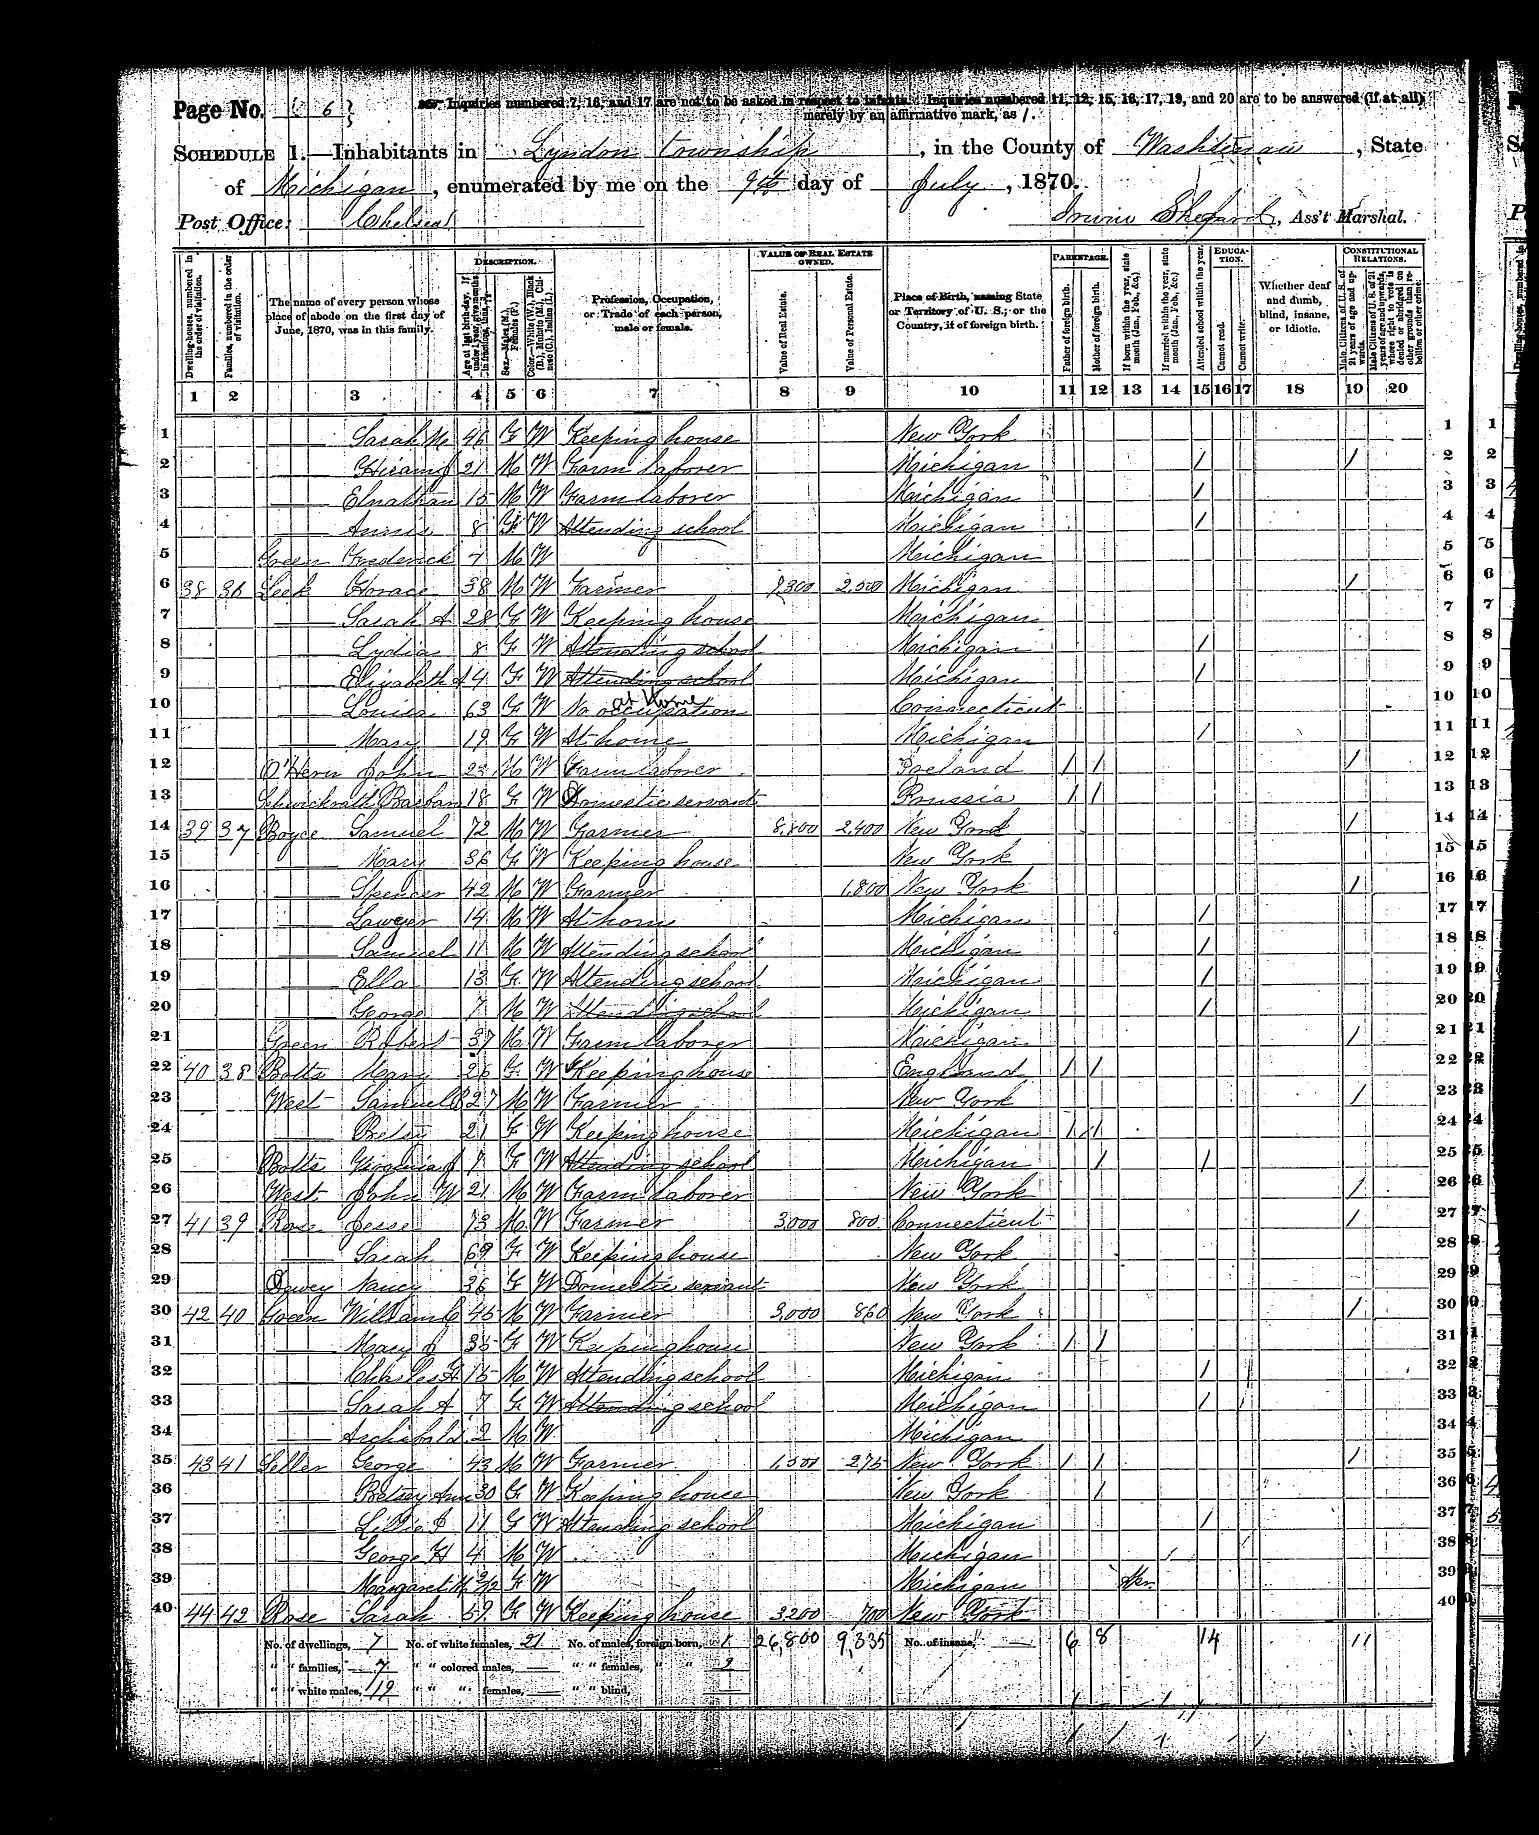 Page No. 6
Inquiries numbered 7, 16, and 17 are not to be asked in respect to infants. Inquiries numbered 11, 12, 15, 16, 17, 19, and 20 are to be answered (if at all)
merely by an affirmative mark, as /.
SCHEDULE 1.—Inhabitants in Lyndon township, in the County of Washtenaw, State
of Michigan, enumerated by me on the 9th day of July, 1870.
Post Office: Chelsea
Irwin Shepard, Ass't Marshal.
DESCRIPTION. VALUE OF REAL ESTATE OWNED. PARENTAGE. EDUCATION. CONSTITUTIONAL RELATIONS.
Dwelling-houses, numbered in the order of visitation.
Families, numbered in the order of visitation.
The name of every person whose place of abode on the first day of June, 1870, was in this family.
Age at last birth-day. If under 1 year, give months in fractions, thus,
Sex.—Males (M.), Females (F.)
Color.—White (W.), Black (B.), Mulatto (M.), Chinese (C.), Indian (I.)
Profession, Occupation, or Trade of each person, male or female.
Value of Real Estate.
Value of Personal Estate.
Place of Birth, naming State or Territory of U. S.; or the Country, if of foreign birth.
Father of foreign birth.
Mother of foreign birth.
If born within the year, state month (Jan., Feb., &c.)
If married within the year, state month (Jan., Feb., &c.)
Attended school within the year.
Cannot read.
Cannot write.
Whether deaf and dumb, blind, insane, or idiotic.
Male Citizens of U. S. of 21 years of age and upwards.
Male Citizens of U. S. of 21 years of age and upwards, where right to vote is denied or abridged on other grounds than rebellion or other crime.
1 2 3 4 5 6 7 8 9 10 11 12 13 14 15 16 17 18 19 20
1 Sarah M 46 F W Keeping house New York 1
2 Hiram J 21 M W Farm laborer Michigan / / 2
3 Elnathan 15 M W Farm laborer Michigan / 3
4 Annis 8 F W Attending school Michigan / 4
5 Green Frederick 7 M W Michigan 5
6 38 36 Leek Horace 38 M W Farmer 7,300 2,500 Michigan / 6
7 Sarah A 28 F W Keeping house Michigan 7
8 Lydia 8 F W Attending school Michigan / 8
9 Elizabeth A 4 F W Attending school Michigan / 9
10 Louisa 63 F W No occupation at Home Connecticut 10
11 Mary 19 F W At home Michigan / 11
12 O'Hern John M W Farm laborer Ireland / / / 12
13 Barbara 18 F W Domestic servant Prussia / / 13
14 39 37 Boyce Samuel 72 M W Farmer 8,800 2,400 New York / 14
15 Mary 36 F W Keeping house New York 15
16 Spencer 42 M W Farmer 1,800 New York / 16
17 Sawyer 14 M W At home Michigan / 17
18 Samuel 11 M W Attending school Michigan / 18
19 Ella 13 F W Attending school Michigan / 19
20 George 7 M W Attending school Michigan / 20
21 Green Robert 37 M W Farm laborer Michigan / 21
22 40 38 Botts Mary 26 F W Keeping house England / / 22
23 West Samuel 27 M W Farmer New York / 23
24 Betsy 21 F W Keeping house Michigan / / 24
25 Botts Virginia J F W Attending school Michigan / / 25
26 West John W 21 M W Farm laborer New York / 26
27 41 39 Rose Jesse 73 M W Farmer 3,000 800 Connecticut / 27
28 Sarah 69 F W Keeping house New York 28
29 Dewey Nancy 36 F W Domestic servant New York 29
30 42 40 Green William C 45 M W Farmer 3,000 860 New York / 30
31 Mary J 35 F W Keeping house New York / / 31
32 Charles H 15 M W Attending school Michigan / 32
33 Sarah A 7 F W Attending school Michigan / 33
34 Archibald 2 M W Michigan 34
35 43 41 Seller George 43 M W Farmer 1,500 275 New York / / / 35
36 Betsey Ann 30 F W Keeping house New York / 36
37 Lillie J 11 F W Attending school Michigan / 37
38 George H 4 M W Michigan 38
39 Margaret M 3/12 F W Michigan Apr. 39
40 44 42 Rose Sarah 59 F W Keeping house 3200 700 New York 40
No. of dwellings, 7 No. of white females, 21 No. of males, foreign born, 1 26,800 9,335 No. of insane, 6 8 14 11
" " families, 7 " " colored males, " " females, " " 2
" " white males, 19 " " " females, " " blind,